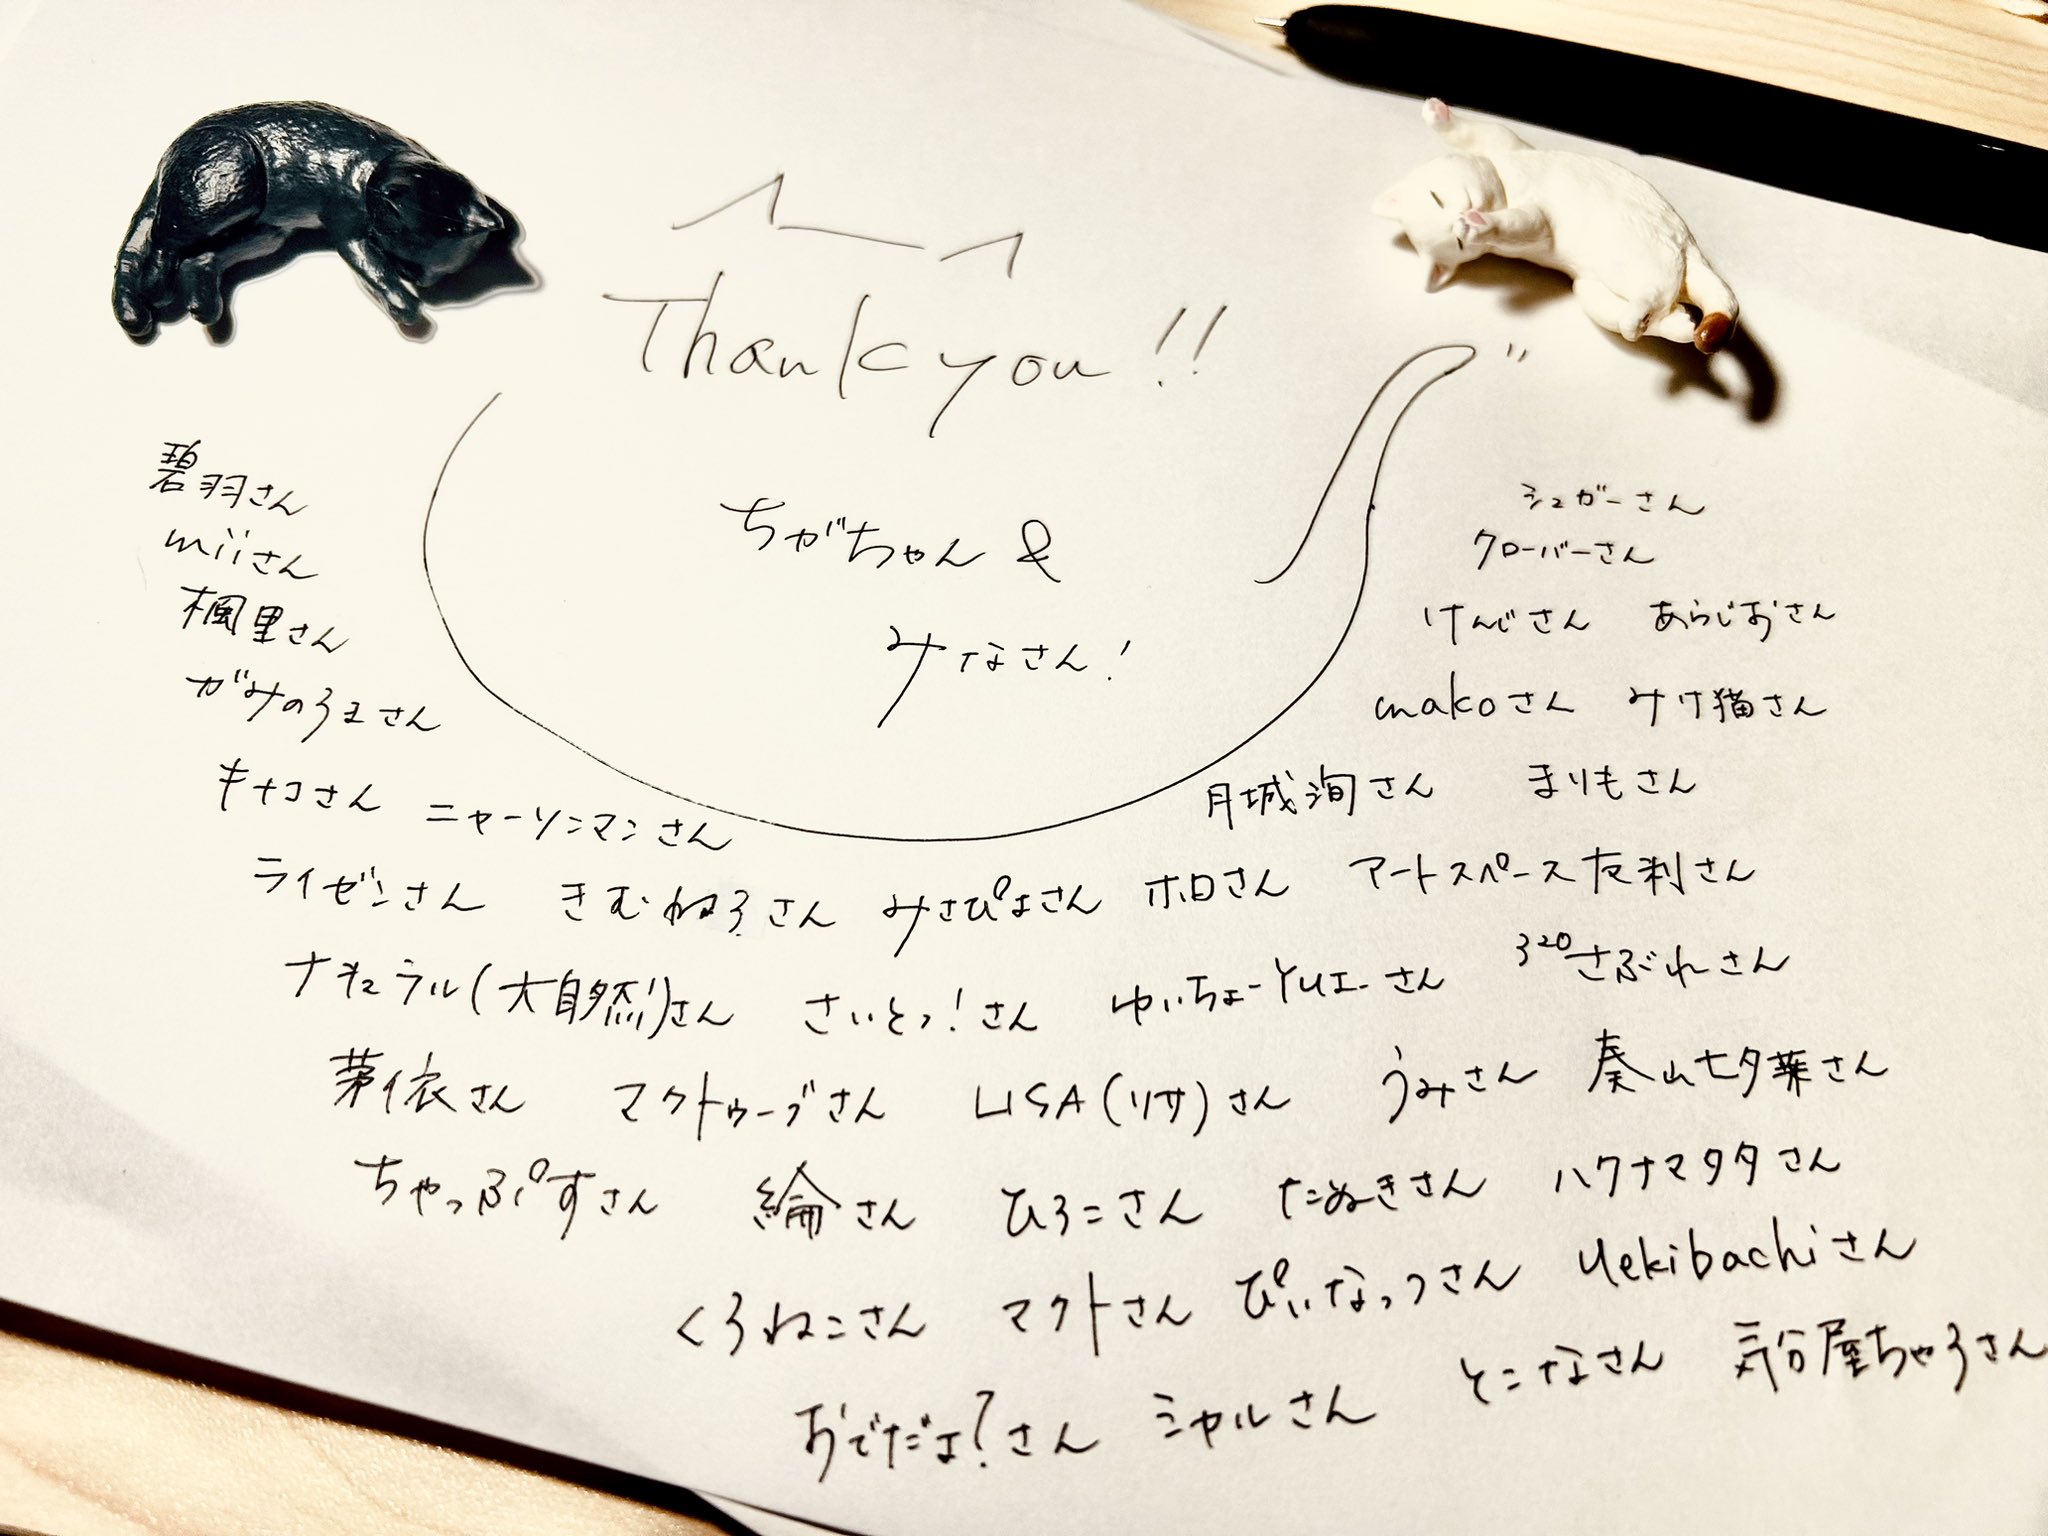 Thank you!!
ちがちゃん &
みなさん!
碧羽さん
miiさん
楓里さん
がみのろまさん
キナコさん
ニャーソンマンさん
シュガーさん
クローバーさん
けんじさん あらじおさん
makoさん みけ猫さん
月城洵さん まりもさん
ライゼンさん きむねろさん みさぴよさん ホロさん アートスペース友利さん
ナチュラル(大自然)さん さいとっ!さん ゆいちょーYUIーさん 320さぶれさん
茅依さん マクトゥーブさん LISA(リサ)さん うみさん 奏山七夕葉さん
ちゃっぷすさん 綸さん ひろこさん たぬきさん ハクナマタタさん
くろねこさん マクトさん ぴぃなっつさん Uekibachiさん
おでだよ?さん シャルさん とこなさん 気分屋ちゃろさん